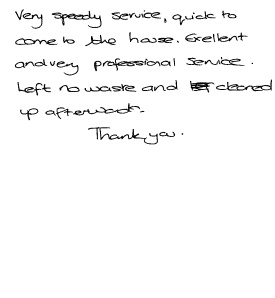 Very speedy service, quick to
come to the house. Exellent
and very professional service.
Left no waste and cleaned
up afterwards.
Thank you.